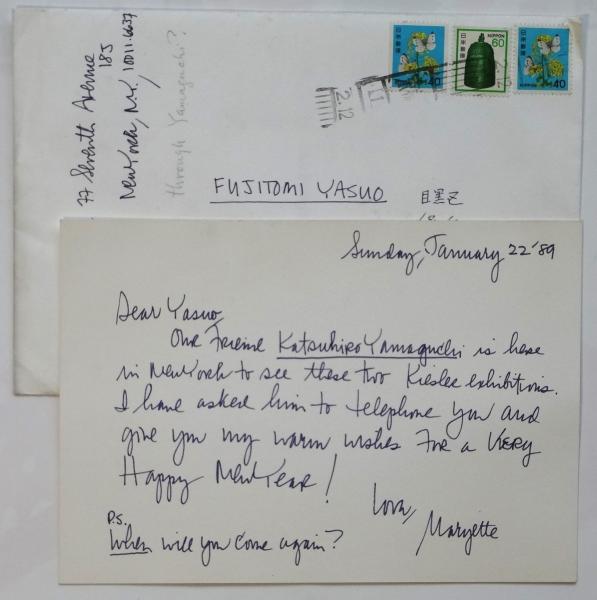 77 Seventh Avenue
18J
New York, N.Y. 10011-6637
through Yamaguchi?
日本郵便
NIPPON
40
日本郵便
NIPPON
60
日本郵便
NIPPON
40
2.12
FUJITOMI YASUO
目黒区
Sunday, January 22 '89
Dear Yasuo,
Our friend Katsuhiro Yamaguchi is here
in New York to see these two Kiesler exhibitions.
I have asked him to telephone you and
give you my warm wishes for a VERY
Happy New Year!
Love,
Maryette
P.S.
When will you come again?